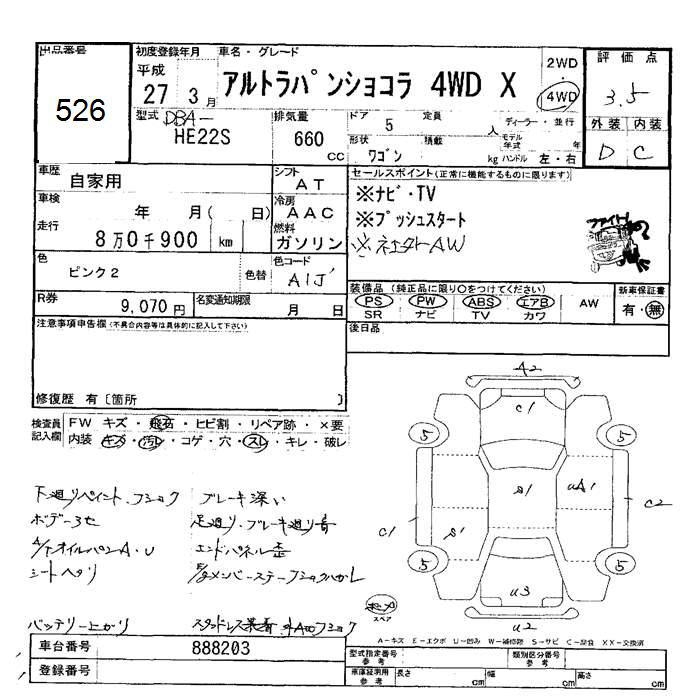 出品番号
526
初度登録年月
平成
27 3月
車名・グレード
アルトラパンショコラ 4WD X
2WD
・
4WD
評価点
3.5
外装 内装
D C
型式
DBA-
HE22S
排気量
660
cc
ドア
5
定員
人
形状
ワゴン
積載
kg
ディーラー・並行
モデル年式
年
ハンドル 左・右
車歴
自家用
シフト
AT
車検
年 月( 日)
冷房
AAC
走行
8万0千900 km
燃料
ガソリン
色
ピンク2
色替
色コード
A1J
R券
9,070円
名変通知期限
月 日
セールスポイント(正常に機能するものに限ります)
※ナビ・TV
※プッシュスタート
AW
ファイト!
装備品(純正品に限り〇をつけてください)
PS PW ABS エアB AW
SR ナビ TV カワ
新車保証書
有・無
後日品
注意事項申告欄(不具合内容等は具体的に記入して下さい)
修復歴 有〔箇所 〕
検査員記入欄
FW キズ・飛石・ヒビ割・リペア跡・×要
内装 キズ・汚レ・コゲ・穴・スレ・キレ・破レ
下廻りペイント・フショク
ブレーキ深い
ボデー3セ
足廻り・ブレーキ廻り音
A/TオイルパンA・U
エンドパネル歪
シートヘタリ
バッテリー上がり
A2
C1
5 5
S1
UA1
C2
C1
S1
5 5
U3
U2
スペア
A-キズ E-エクボ U-凹み W-補修跡 S-サビ C-腐食 XX-交換済
車台番号
888203
登録番号
型式指定番号
参考
類別区分番号
参考
車庫証明用
参考
長さ cm 幅 cm 高さ cm